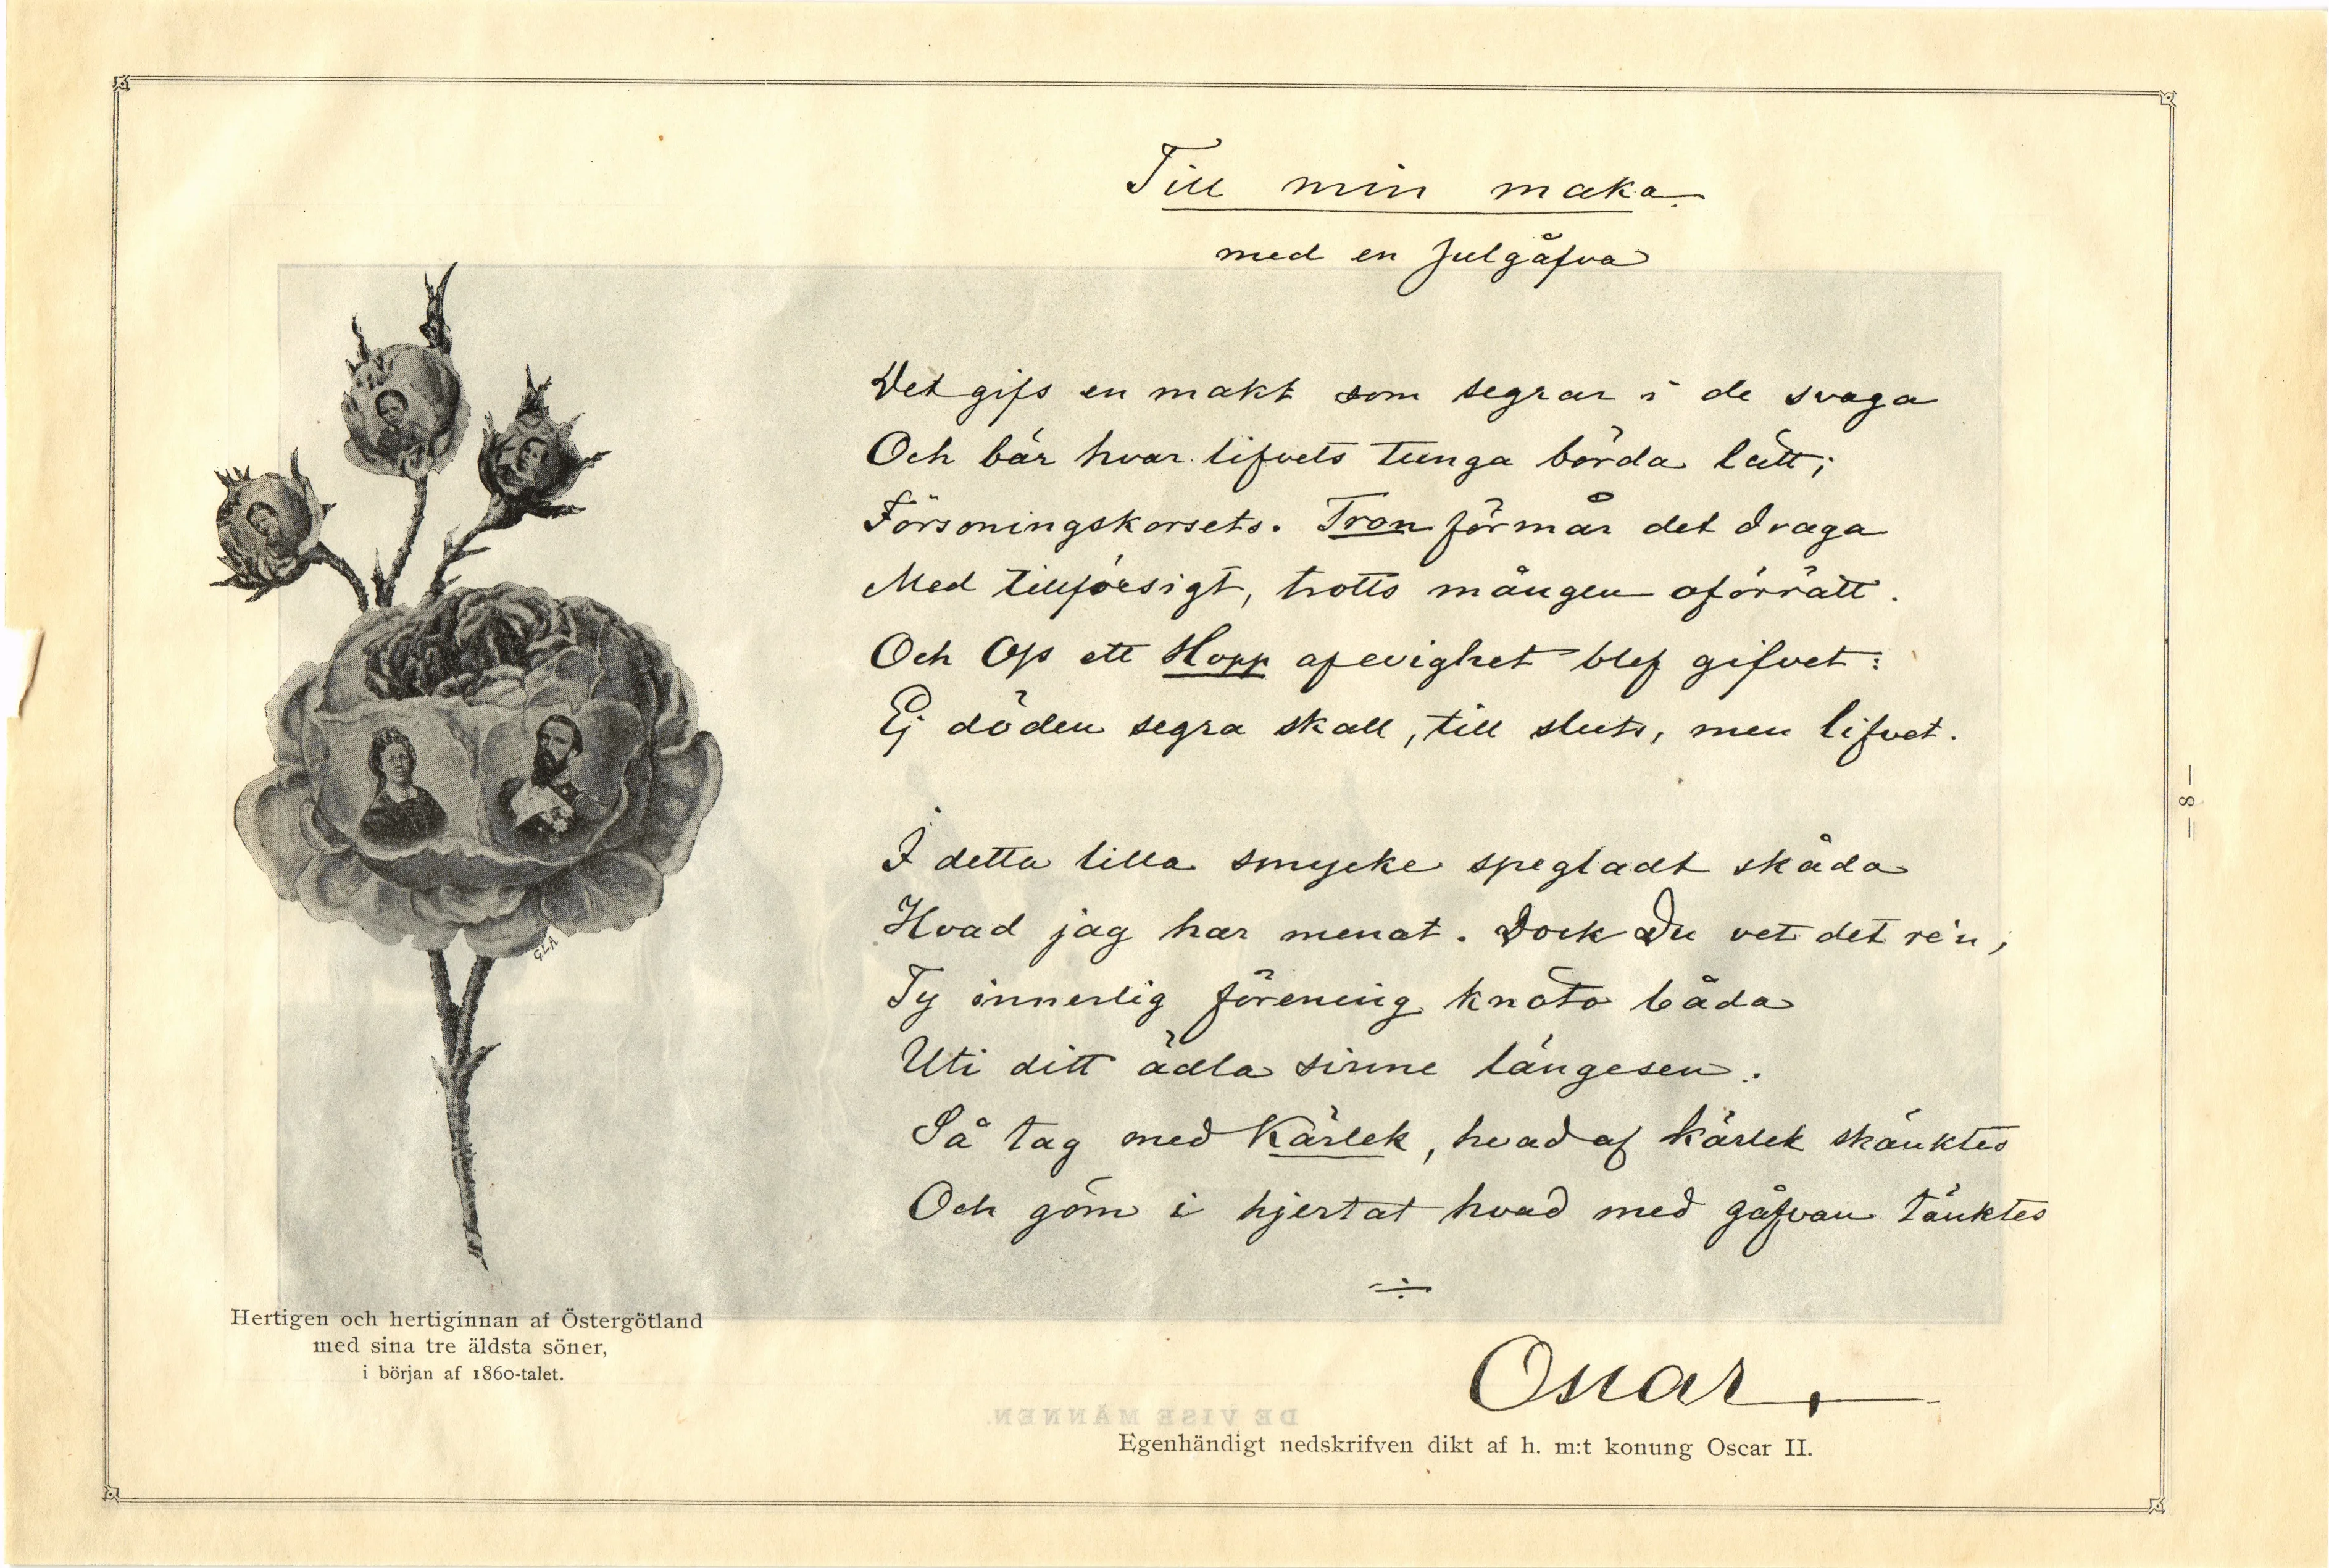 Till min maka.
med en Julgåfva
Det gifs en makt som segrar i de svaga
Och bär hvar lifvets tunga börda lätt;
Försoningskorsets. Tron förmår det draga
Med tillförsigt, trotts mången oförrätt.
Och Oss ett Hopp af evighet blef gifvet:
Ej döden segra skall, till sluts, men lifvet.
I detta lilla smycke spegladt skåda
Hvad jag har menat. Dock Du vet det re'n;
Ty innerlig förening knöto båda
Uti ditt ädla sinne längesen.
Så tag med Kärlek, hvad af kärlek skänktes
Och göm i hjertat hvad med gåfvan tänktes
Oscar
GLA
Hertigen och hertiginnan af Östergötland
med sina tre äldsta söner,
i början af 1860-talet.
DE VISE MÄNNEN.
Egenhändigt nedskrifven dikt af h. m:t konung Oscar II.
— 8 —